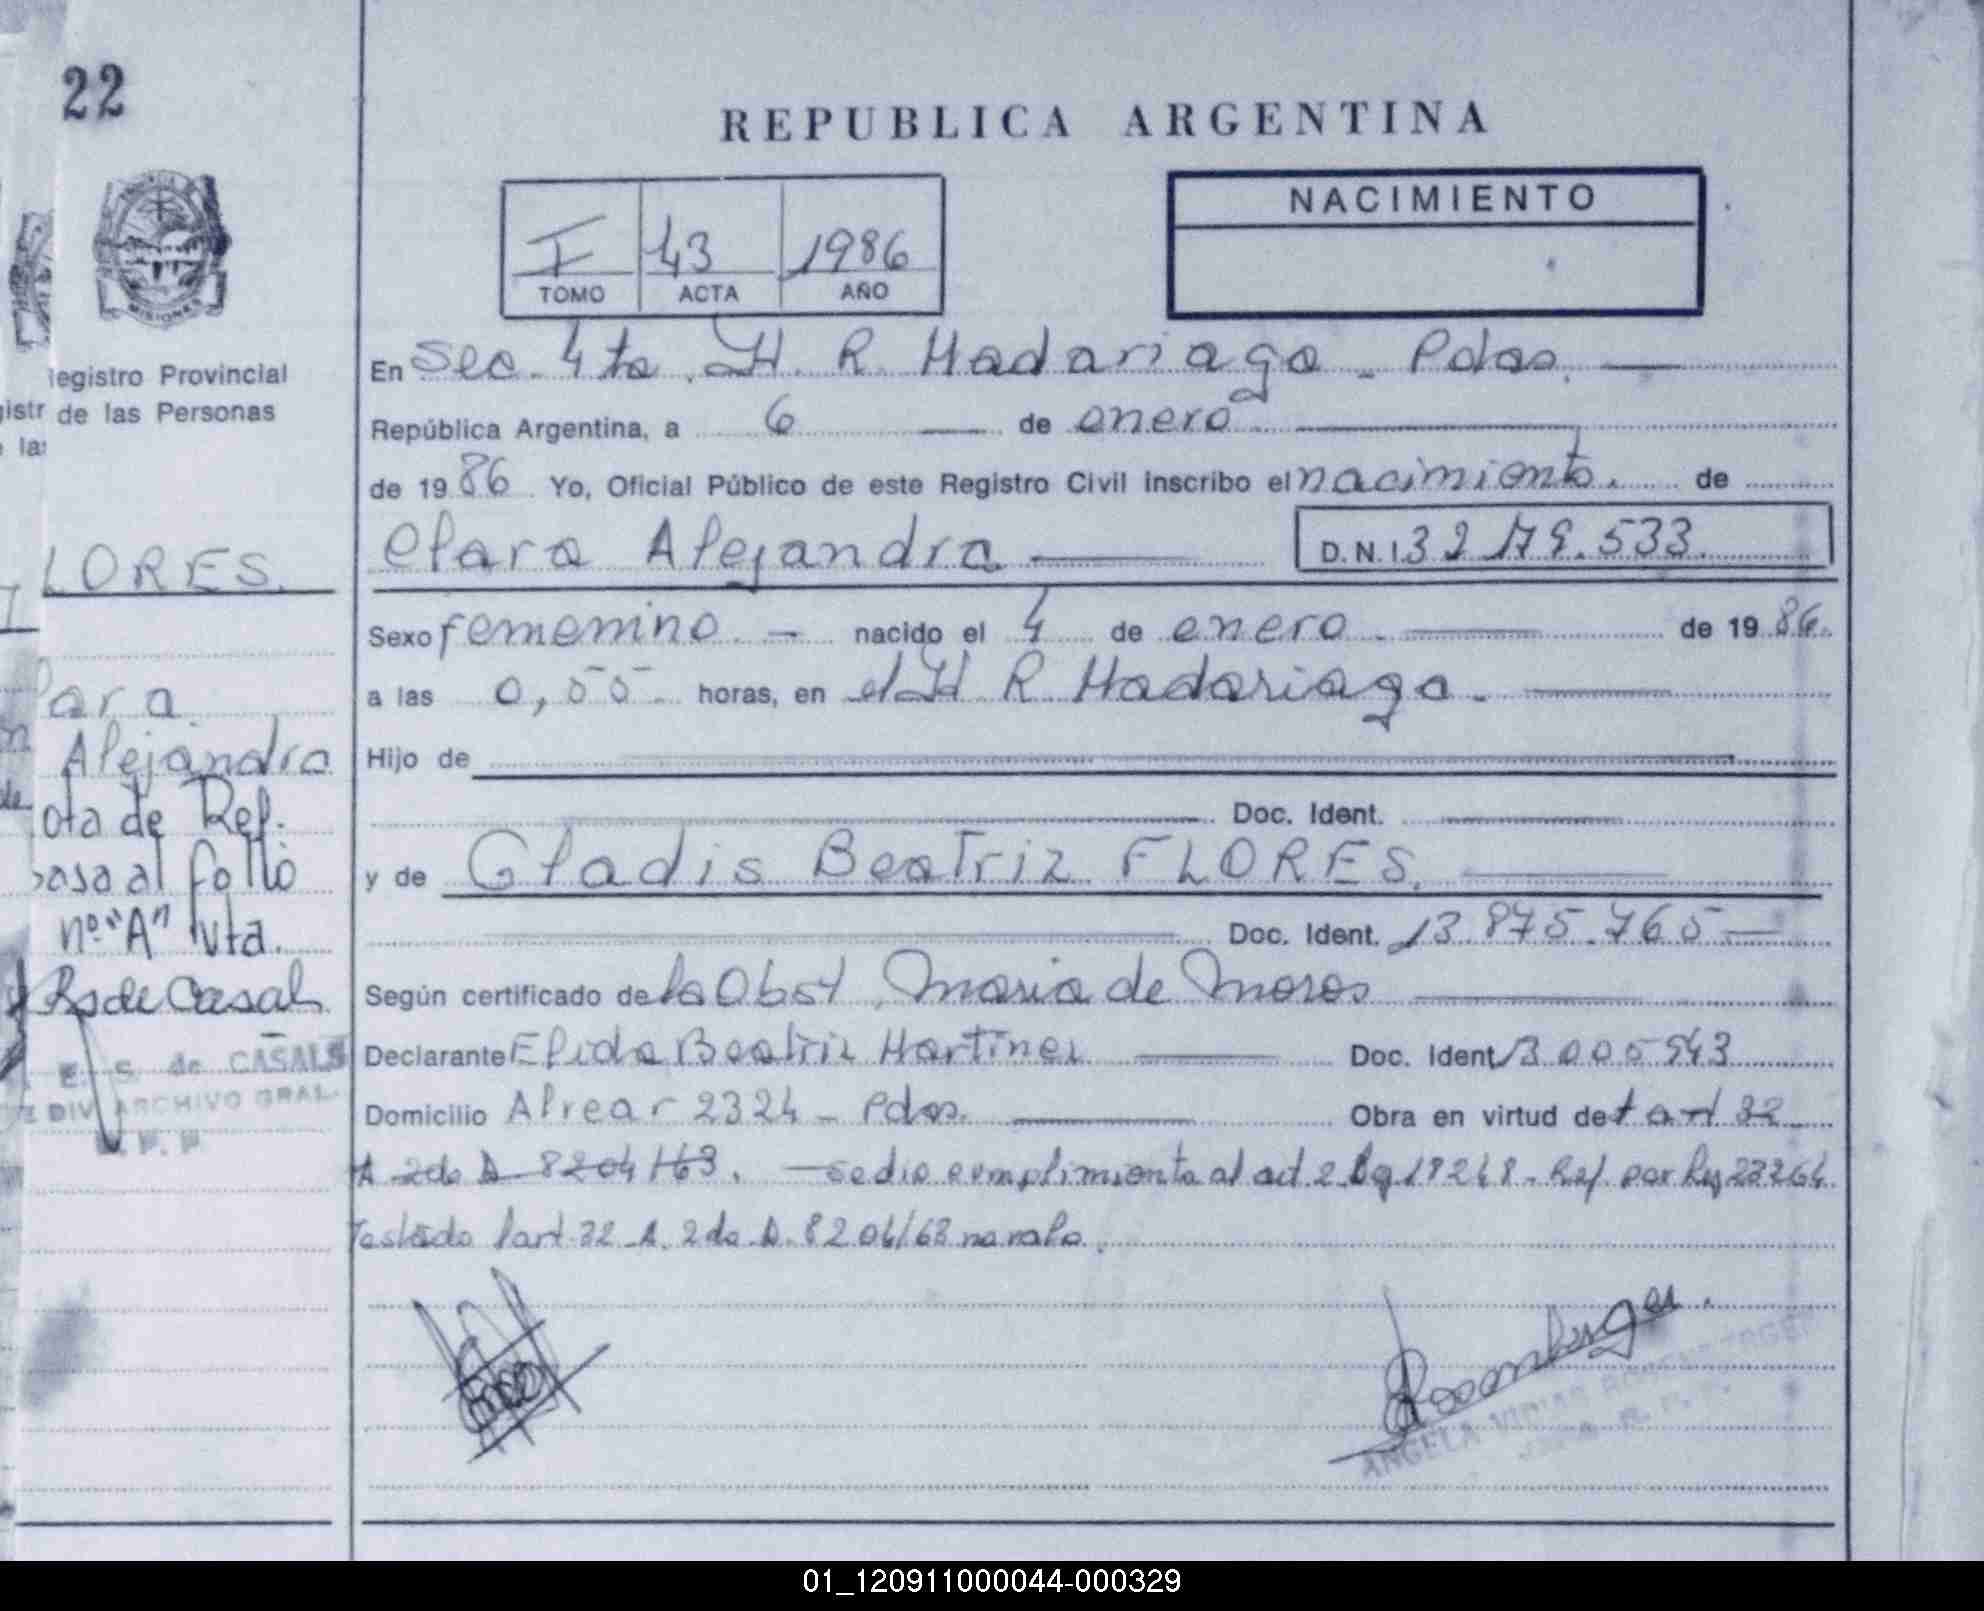 22
REPUBLICA ARGENTINA
I 43 1986
TOMO ACTA AÑO
NACIMIENTO
MISIONES
egistro Provincial
de las Personas
En Sec. 4ta. H. R. Madariaga - Pdas.
República Argentina, a 6 de enero
de 1986. Yo, Oficial Público de este Registro Civil inscribo el nacimiento. de
Clara Alejandra D.N.I. 32.179.533
LORES.
Sexo femenino. - nacido el 4 de enero. de 1986.
a las 0,55 horas, en el H R Madariaga.
Hijo de
Doc. Ident.
y de Gladis Beatriz FLORES.
Doc. Ident. 13.875.765
Según certificado de la Obst. Maria de Moros
Declarante Elida Beatriz Martinez Doc. Ident. 13005943
Domicilio Alvear 2324 - Pdas. Obra en virtud de l art 32
A 2do D 8204/63. Se dio cumplimiento al art 2 Ley 18248. Ref. por Ley 23264.
Testado l art. 32 A. 2do D. 8204/63 no vale.
lara
Alejandra
ota de Ref.
pasa al folio
nº "A" vta.
Rs de Casals
E. S. de CASALS
DIV ARCHIVO GRAL.
ANGELA
01_120911000044-000329